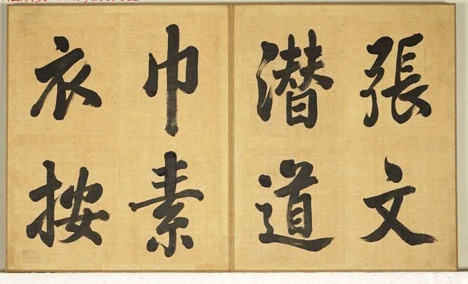 張文
潜道
巾素
衣按